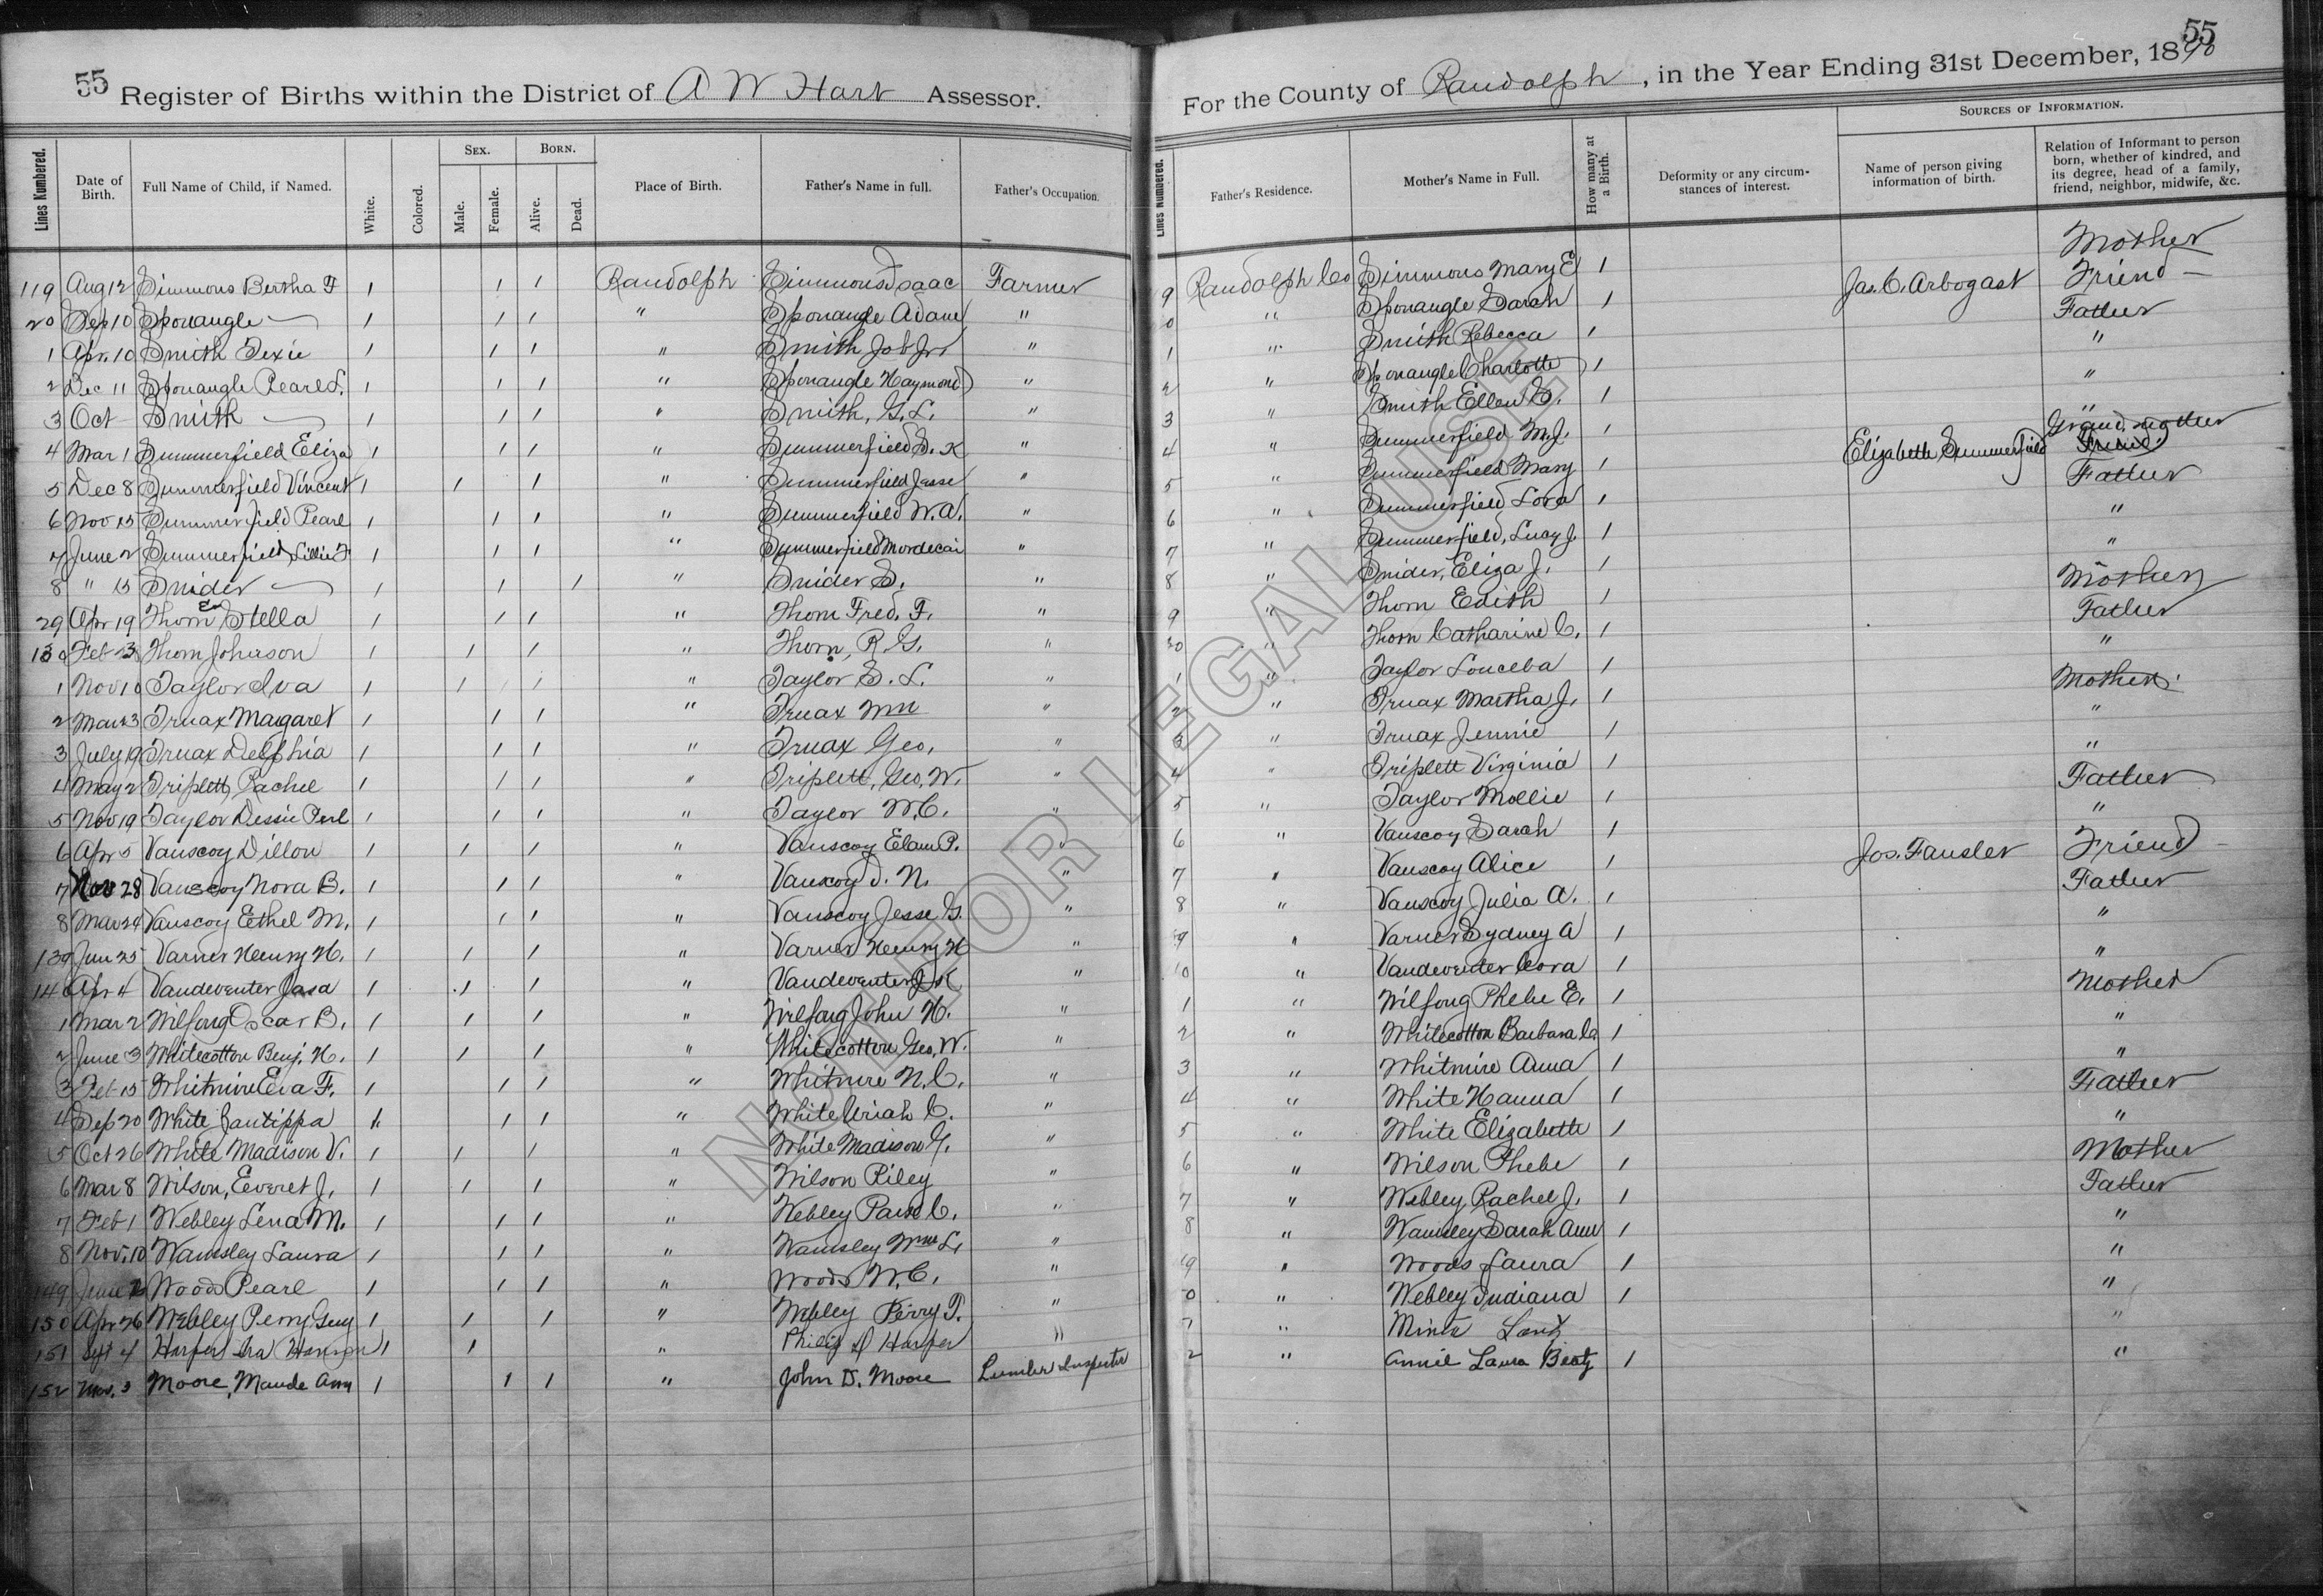 55 Register of Births within the District of A W Hart Assessor.
For the County of Randolph, in the Year Ending 31st December, 1890 55
Lines Numbered. Date of Birth. Full Name of Child, if Named. White. Colored. Sex. Male. Female. Born. Alive. Dead. Place of Birth. Father's Name in full. Father's Occupation.
Lines Numbered. Father's Residence. Mother's Name in Full. How many at a Birth. Deformity or any circumstances of interest. Sources of Information. Name of person giving information of birth. Relation of Informant to person born, whether of kindred, and its degree, head of a family, friend, neighbor, midwife, &c.
Mother
119 Aug 12 Simmons Bertha F 1 1 1 Randolph Simmons Isaac Farmer 9 Randolph Co Simmons Mary E 1 Jas. C. Arbogast Friend
20 Sep 10 Sponaugle — 1 1 1 " Sponaugle Adam " 0 " Sponaugle Sarah 1 Father
1 Apr. 10 Smith Texie 1 1 1 " Smith Job Jr. " 1 " Smith Rebecca 1 "
2 Dec 11 Sponaugle Pearl S. 1 1 1 " Sponaugle Haymond " 2 " Sponaugle Charlotte 1 "
3 Oct Smith — 1 1 1 " Smith, G. L. " 3 " Smith Ellen 1 "
4 Mar 1 Summerfield Eliza 1 1 1 " Summerfield S. K " 4 " Summerfield M. J. 1 Elizabeth Summerfield Grand mother Friend
5 Dec 8 Summerfield Vincent 1 1 1 " Summerfield Jesse " 5 " Summerfield Mary 1 Father
6 Nov 15 Summerfield Pearl 1 1 1 " Summerfield W. A. " 6 " Summerfield Lora 1 "
7 June 2 Summerfield Lillie F 1 1 1 " Summerfield Mordecai " 7 " Summerfield, Lucy J. 1 "
8 " 15 Snider — 1 1 1 " Snider S. " 8 " Snider, Eliza J. 1 Mother
29 Apr 19 Thorn Stella 1 1 1 " Thorn Fred. F. " 9 " Thorn Edith 1 Father
130 Feb Thorn Johnson 1 1 1 " Thorn, R. G. " 30 " Thorn Catharine C. 1 "
1 Nov 10 Taylor Iva 1 1 1 " Taylor S. L. " 1 " Taylor Louceba 1 Mother
2 Mar 23 Truax Margaret 1 1 1 " Truax Wm " 2 " Truax Martha J. 1 "
3 July 19 Truax Delphia 1 1 1 " Truax Geo. " 3 " Truax Jennie 1 "
4 May 2 Triplett, Rachel 1 1 1 " Triplett, Geo. W. " 4 " Triplett Virginia 1 Father
5 Nov 19 Taylor Dessie Perl 1 1 1 " Taylor W. C. " 5 " Taylor Mollie 1 "
6 Apr 5 Vanscoy Dillon 1 1 1 " Vanscoy Elam P. " 6 " Vanscoy Sarah 1 Jos. Fansler Friend
7 Nov 28 Vanscoy Nora B. 1 1 1 " Vanscoy D. N. " 7 " Vanscoy Alice 1 Father
8 Mar 24 Vanscoy Ethel M. 1 1 1 " Vanscoy Jesse G. " 8 " Vanscoy Julia A. 1 "
139 Jun 25 Varner Henry H. 1 1 1 " Varner Henry H " 9 " Varner Sydney A 1 "
140 Apr 4 Vandeventer Jasa 1 1 1 " Vandeventer J. K " 10 " Vandeventer Cora 1 Mother
1 Mar 2 Wilfong Oscar B. 1 1 1 " Wilfong John H. " 1 " Wilfong Phebe E. 1 "
2 June 3 Whitecotton Benj. H. 1 1 1 " Whitecotton Geo. W. " 2 " Whitecotton Barbara C. 1 "
3 Feb 15 Whitmire Eva F. 1 1 1 " Whitmire N. C. " 3 " Whitmire Anna 1 Father
4 Sep 20 White Jantippa 1 1 1 " White Uriah C. " 4 " White Hanna 1 "
5 Oct 26 White Madison V. 1 1 1 " White Madison G. " 5 " White Elizabeth 1 Mother
6 Mar 8 Wilson, Everet J. 1 1 1 " Wilson Riley " 6 " Wilson Phebe 1 Father
7 Feb 1 Webley Lena M. 1 1 1 " Webley C. " 7 " Webley, Rachel J. 1 "
8 Nov. 10 Wamsley Laura 1 1 1 " Wamsley Wm L. " 8 " Wamsley Sarah Ann 1 "
149 June 2 Woods Pearl 1 1 1 " Woods W. C. " 9 " Woods Laura 1 "
150 Apr 26 Webley Perry Guy 1 1 1 " Webley Perry T. " 0 " Webley Indiana 1 "
151 Sept 4 Harper Ira Hanson 1 1 " Philip D Harper " " Minta Lantz "
152 Nov. 3 Moore, Maude Amy 1 1 1 " John D. Moore Lumber Inspector 2 " Annie Laura Bently 1
NOT FOR LEGAL USE